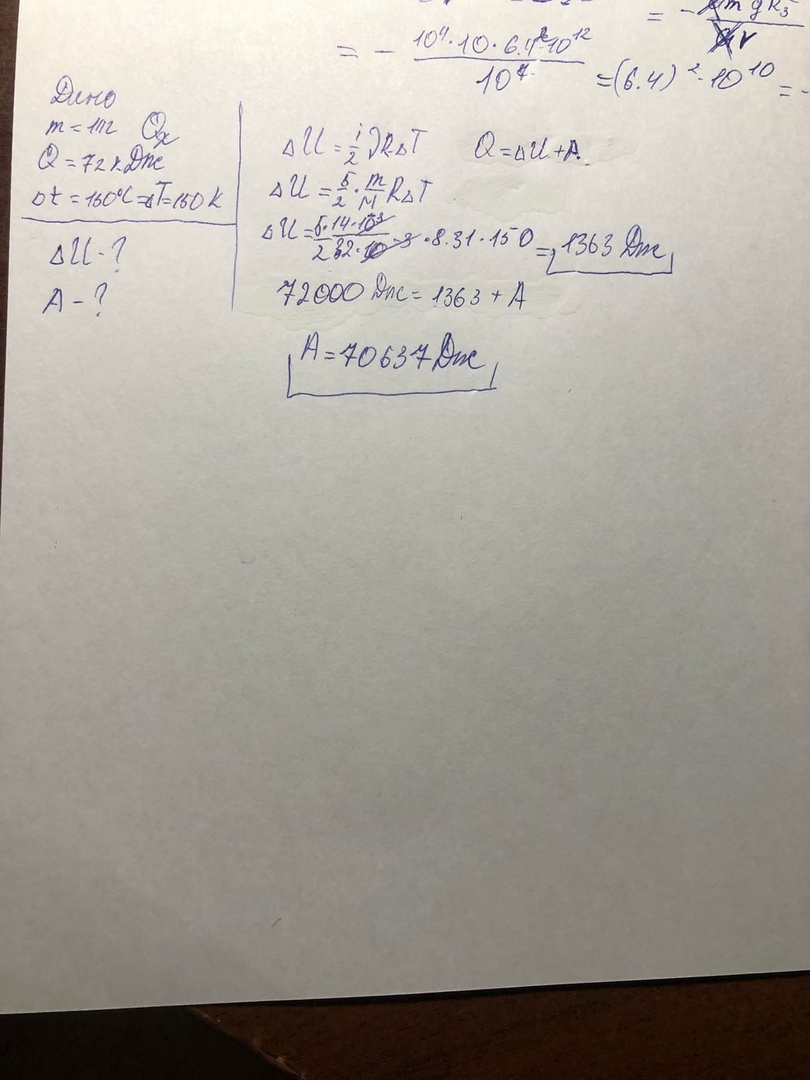 = - m g R₃ / r
= - 10⁴ · 10 · 6.4² · 10¹² / 10⁴ = (6.4)² · 10¹⁰ = -
Дано
m = 14г O₂
Q = 72 кДж
Δt = 150°C ⇒ ΔT = 150 K
ΔU - ?
A - ?
ΔU = i/2 νRΔT Q = ΔU + A
ΔU = 5/2 · m/M RΔT
ΔU = 5·14·10⁻³ / 2·32·10⁻³ · 8.31 · 150 = 1363 Дж
72000 Дж = 1363 + A
A = 70637 Дж